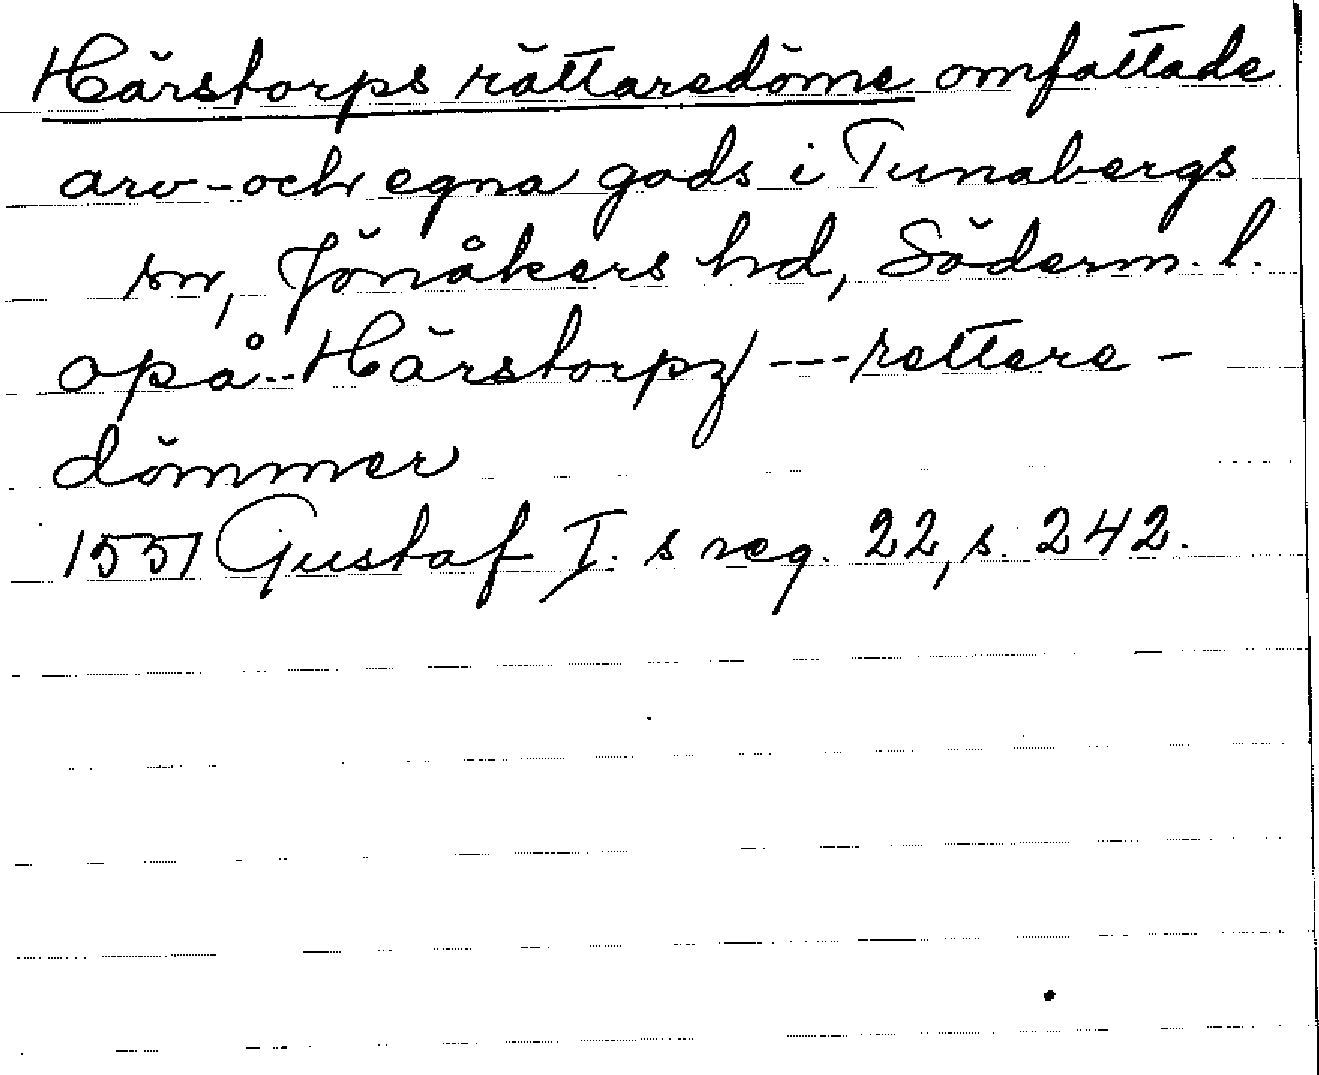 Härstorps rättaredöme omfattade
arv- och egna gods i Tunabergs
sn, Jönåkers hd, Söderm. l.
opå .. Härstorpz --- rettere -
dömmer
1551 Gustaf I. s reg. 22, s. 242.